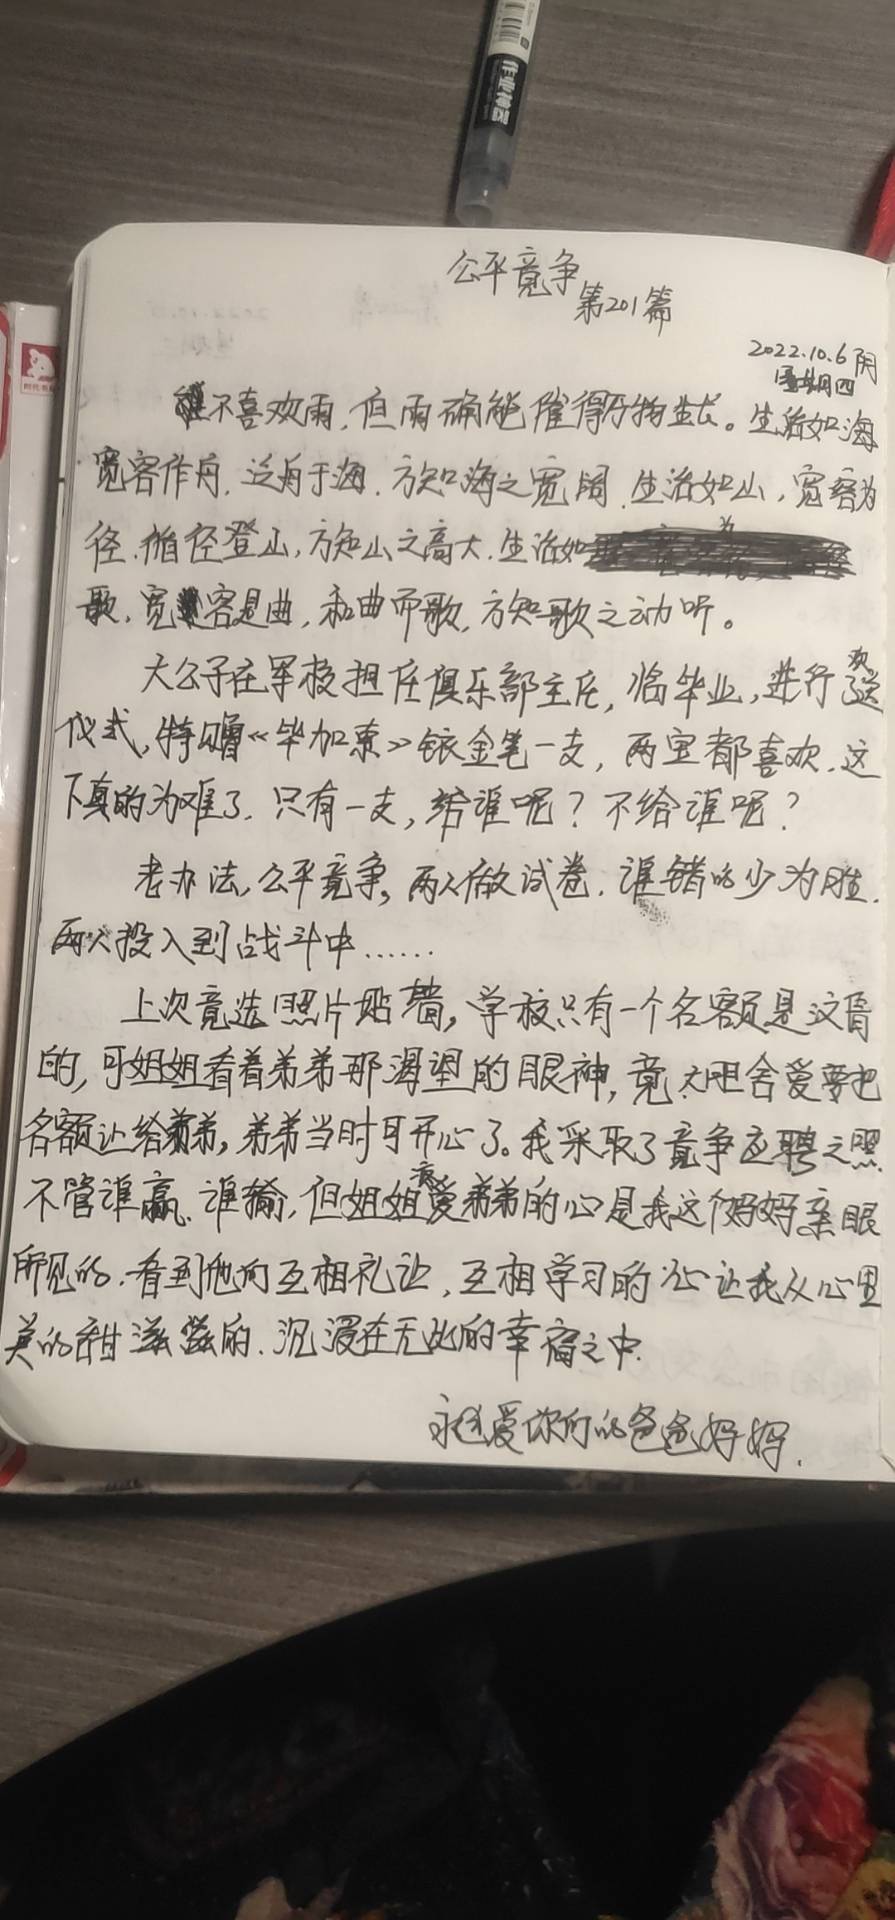 公平竟争
第201篇
2022.10.6 阴
星期四
不喜欢雨,但雨确能催得万物生长。生活如海
宽容作舟,泛舟于海,方知海之宽阔,生活如山,宽容为
径,循径登山,方知山之高大,生活如
歌,宽容是曲,和曲而歌,方知歌之动听。
大公子在军校担任俱乐部主任,临毕业,进行欢送
仪式,特赠《毕加索》铱金笔一支,两宝都喜欢,这
下真的为难了,只有一支,给谁呢?不给谁呢?
老办法,公平竟争,两人做试卷,谁错的少为胜,
两人投入到战斗中……
上次竟选照片贴墙,学校只有一个名额是
的,可姐姐看着弟弟那渴望的眼神,竟大胆舍爱要把
名额让给弟弟,弟弟当时可开心了。我采取了竟争应聘之照
不管谁赢、谁输,但姐姐爱弟弟的心是我这个妈妈亲眼
所见的,看到他们互相礼让,互相学习的心让我从心里
美的甜滋滋的,沉浸在无比的幸福之中.
永远爱你们的爸爸妈妈.